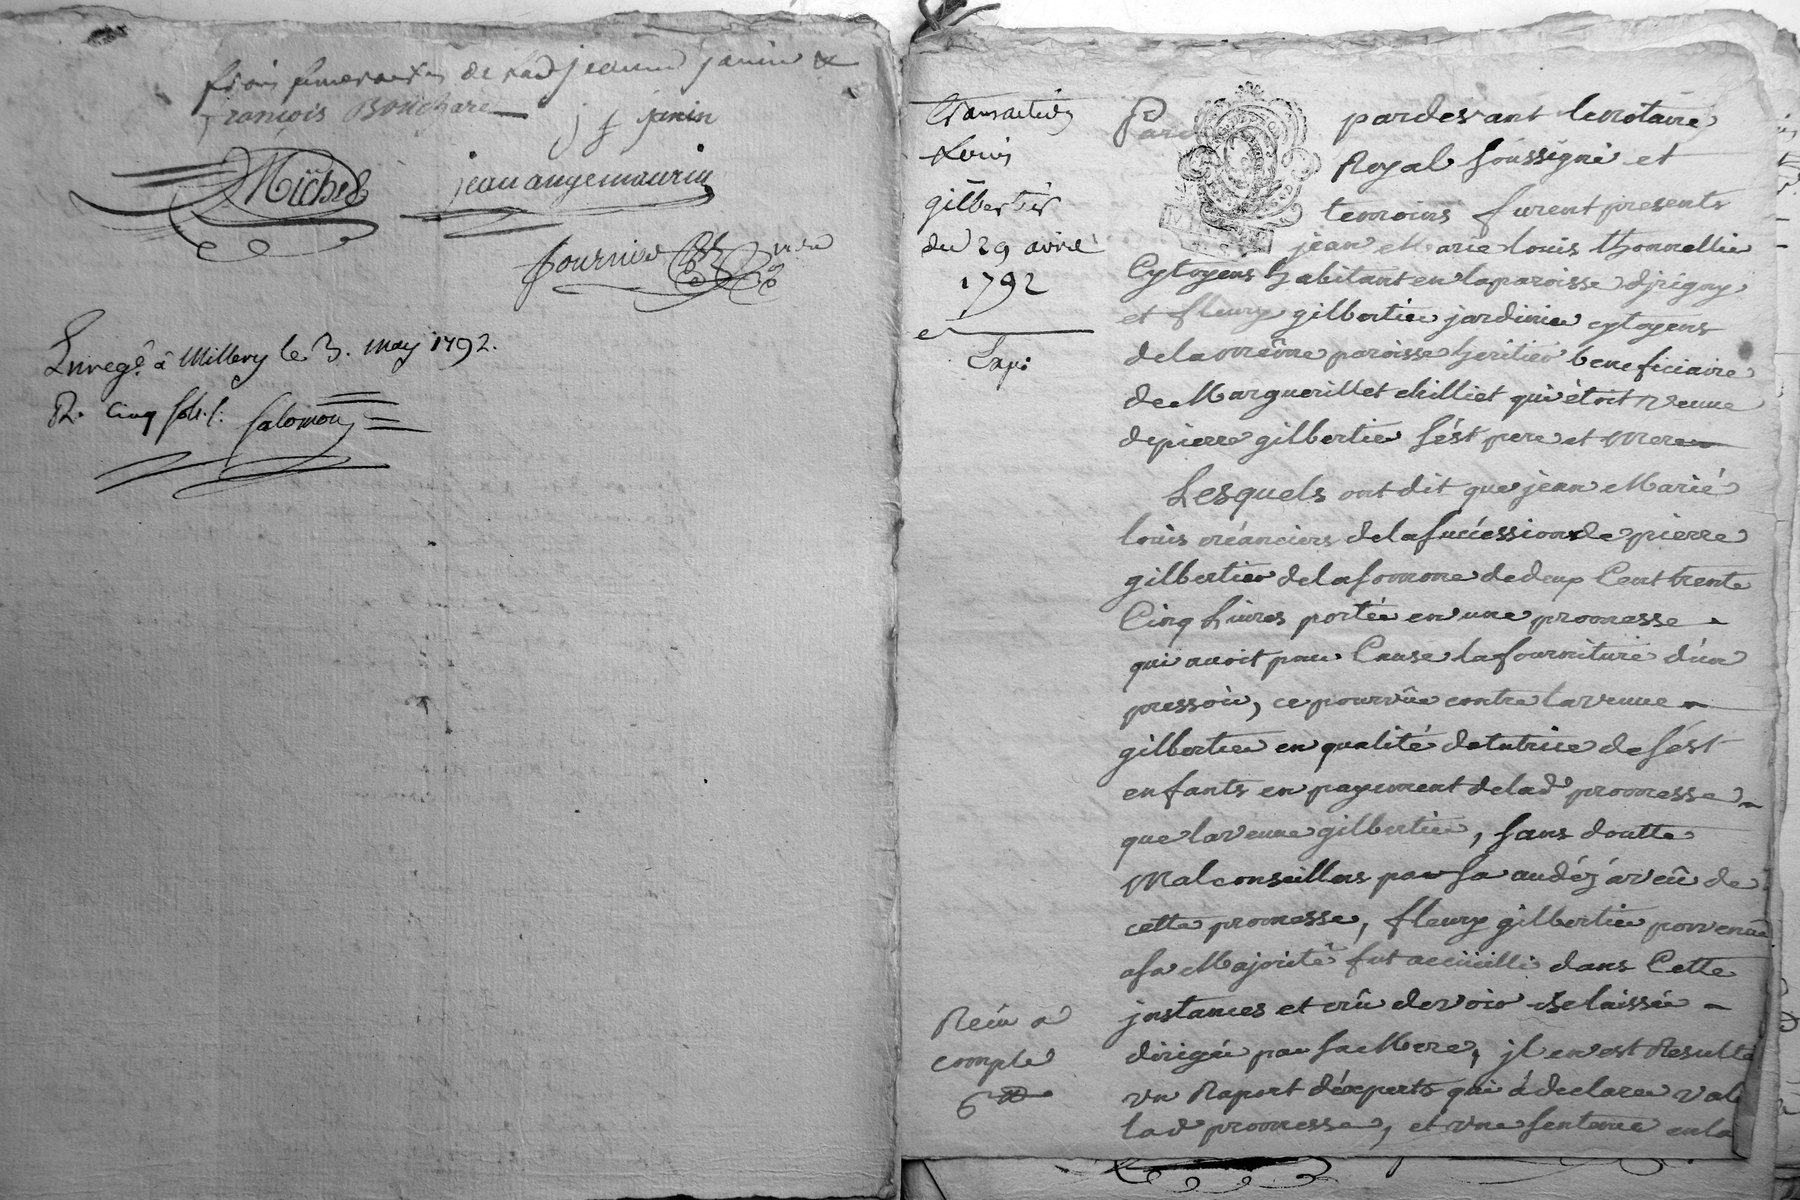 frais funeraires de lad jeanne janin &
françois Bouchare
j f janin
Michel
jean ange maurin
fournier
Enregé. â Millery le 3. may 1792.
R. Cinq sols.
salomon
transaction
Louis
gilbertier
du 29 avril
1792
Exp:
Reçu a
compte
6 ₶
Pard
pardevant le notaire
Royal soussigné et
temoins furent presents
jean Marie louis thonnellier
Cytoyens habitant en la paroisse d'jrigny
et fleury gilbertier jardinier cytoyens
de la même paroisse heritier beneficiaire
de Margueritte Chilliet qui étoit veuve
de pierre gilbertier sést pere et Mere
Lesquels ont dit que jean Marié
louis créanciers de la succéssion de pierre
gilbertier de la somme de deux Cent trente
Cinq Livres portée en une promesse
qui avoit pour Cause la fourniture d'un
pressoir, ce pourvûe contre la veuve
gilbertier en qualité de tutrice de sést
enfants en payement de lad promesse
que la veuve gilbertier, sans doutte
Mal conseillers par sa
cette promesse, fleury gilbertier parvenû
a sa Majorité fut accüeilli dans Cette
jnstances et crû devoir se laissér
dirigér par sa Mere, jl en est Resulté
un Raport d'éxperts qui á declarer
lad promesse, et une sentence en la